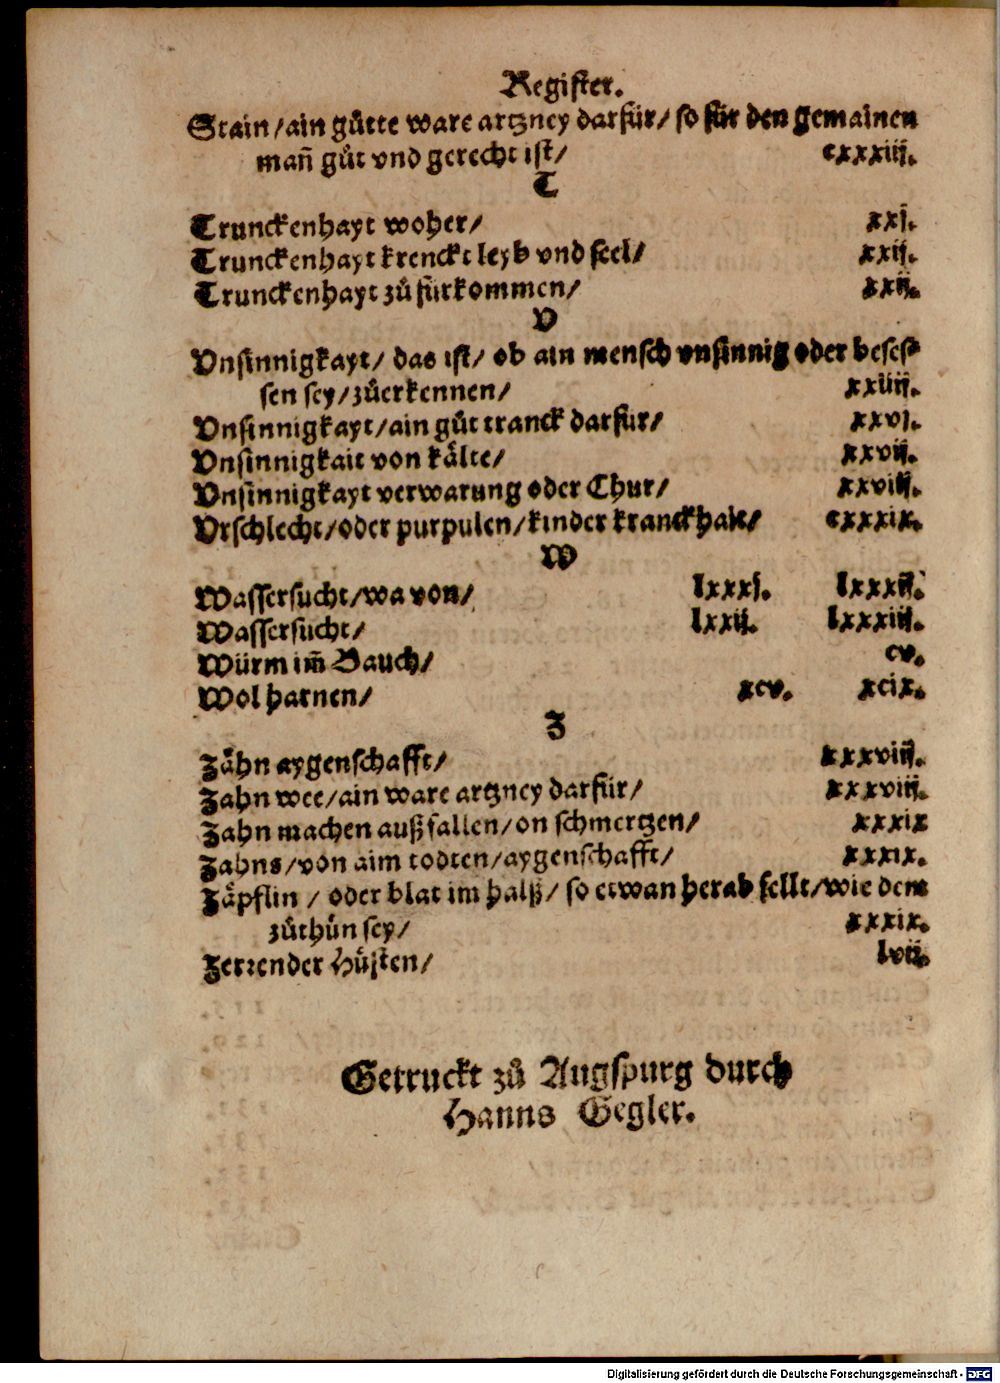 Register.
Stain/ain gůtte ware artzney darfür/ so für den gemainen
mañ gůt vnd gerecht ist/ cxxxiij.
T
Trunckenhayt woher/ xxj.
Trunckenhayt krenckt leyb vnd seel/ xxij.
Trunckenhayt zů fürkommen/ xxij.
V
Vnsinnigkayt/ das ist/ ob ain mensch vnsinnig oder beses⸗
sen sey/zůerkennen/ xxiiij.
Vnsinnigkayt/ain gůt tranck darfür/ xxvj.
Vnsinnigkait von kälte/ xxvij.
Vnsinnigkayt verwarung oder Chur/ xxviij.
Vrschlecht/oder purpulen/kinder kranckhait/ cxxxix.
W
Wassersucht/wa von/ lxxxj. lxxxij.
Wassersucht/ lxxij. lxxxiij.
Würm im̃ Bauch/ cv.
Wol harnen/ xcv. xcix.
Z
Zähn aygenschafft/ xxxviij.
Zahn wee/ain ware artzney darfür/ xxxviij.
Zahn machen außfallen/on schmertzen/ xxxix
Zahns/von aim todten/aygenschafft/ xxxix.
Zäpflin / oder blat im halß/ so etwan herab fellt/wie dem
zůthůn sey/ xxxix.
Zerrender Hůsten/ lvij.
Getruckt zů Augspurg durch
Hanns Gegler.
Digitalisierung gefördert durch die Deutsche Forschungsgemeinschaft - DFG